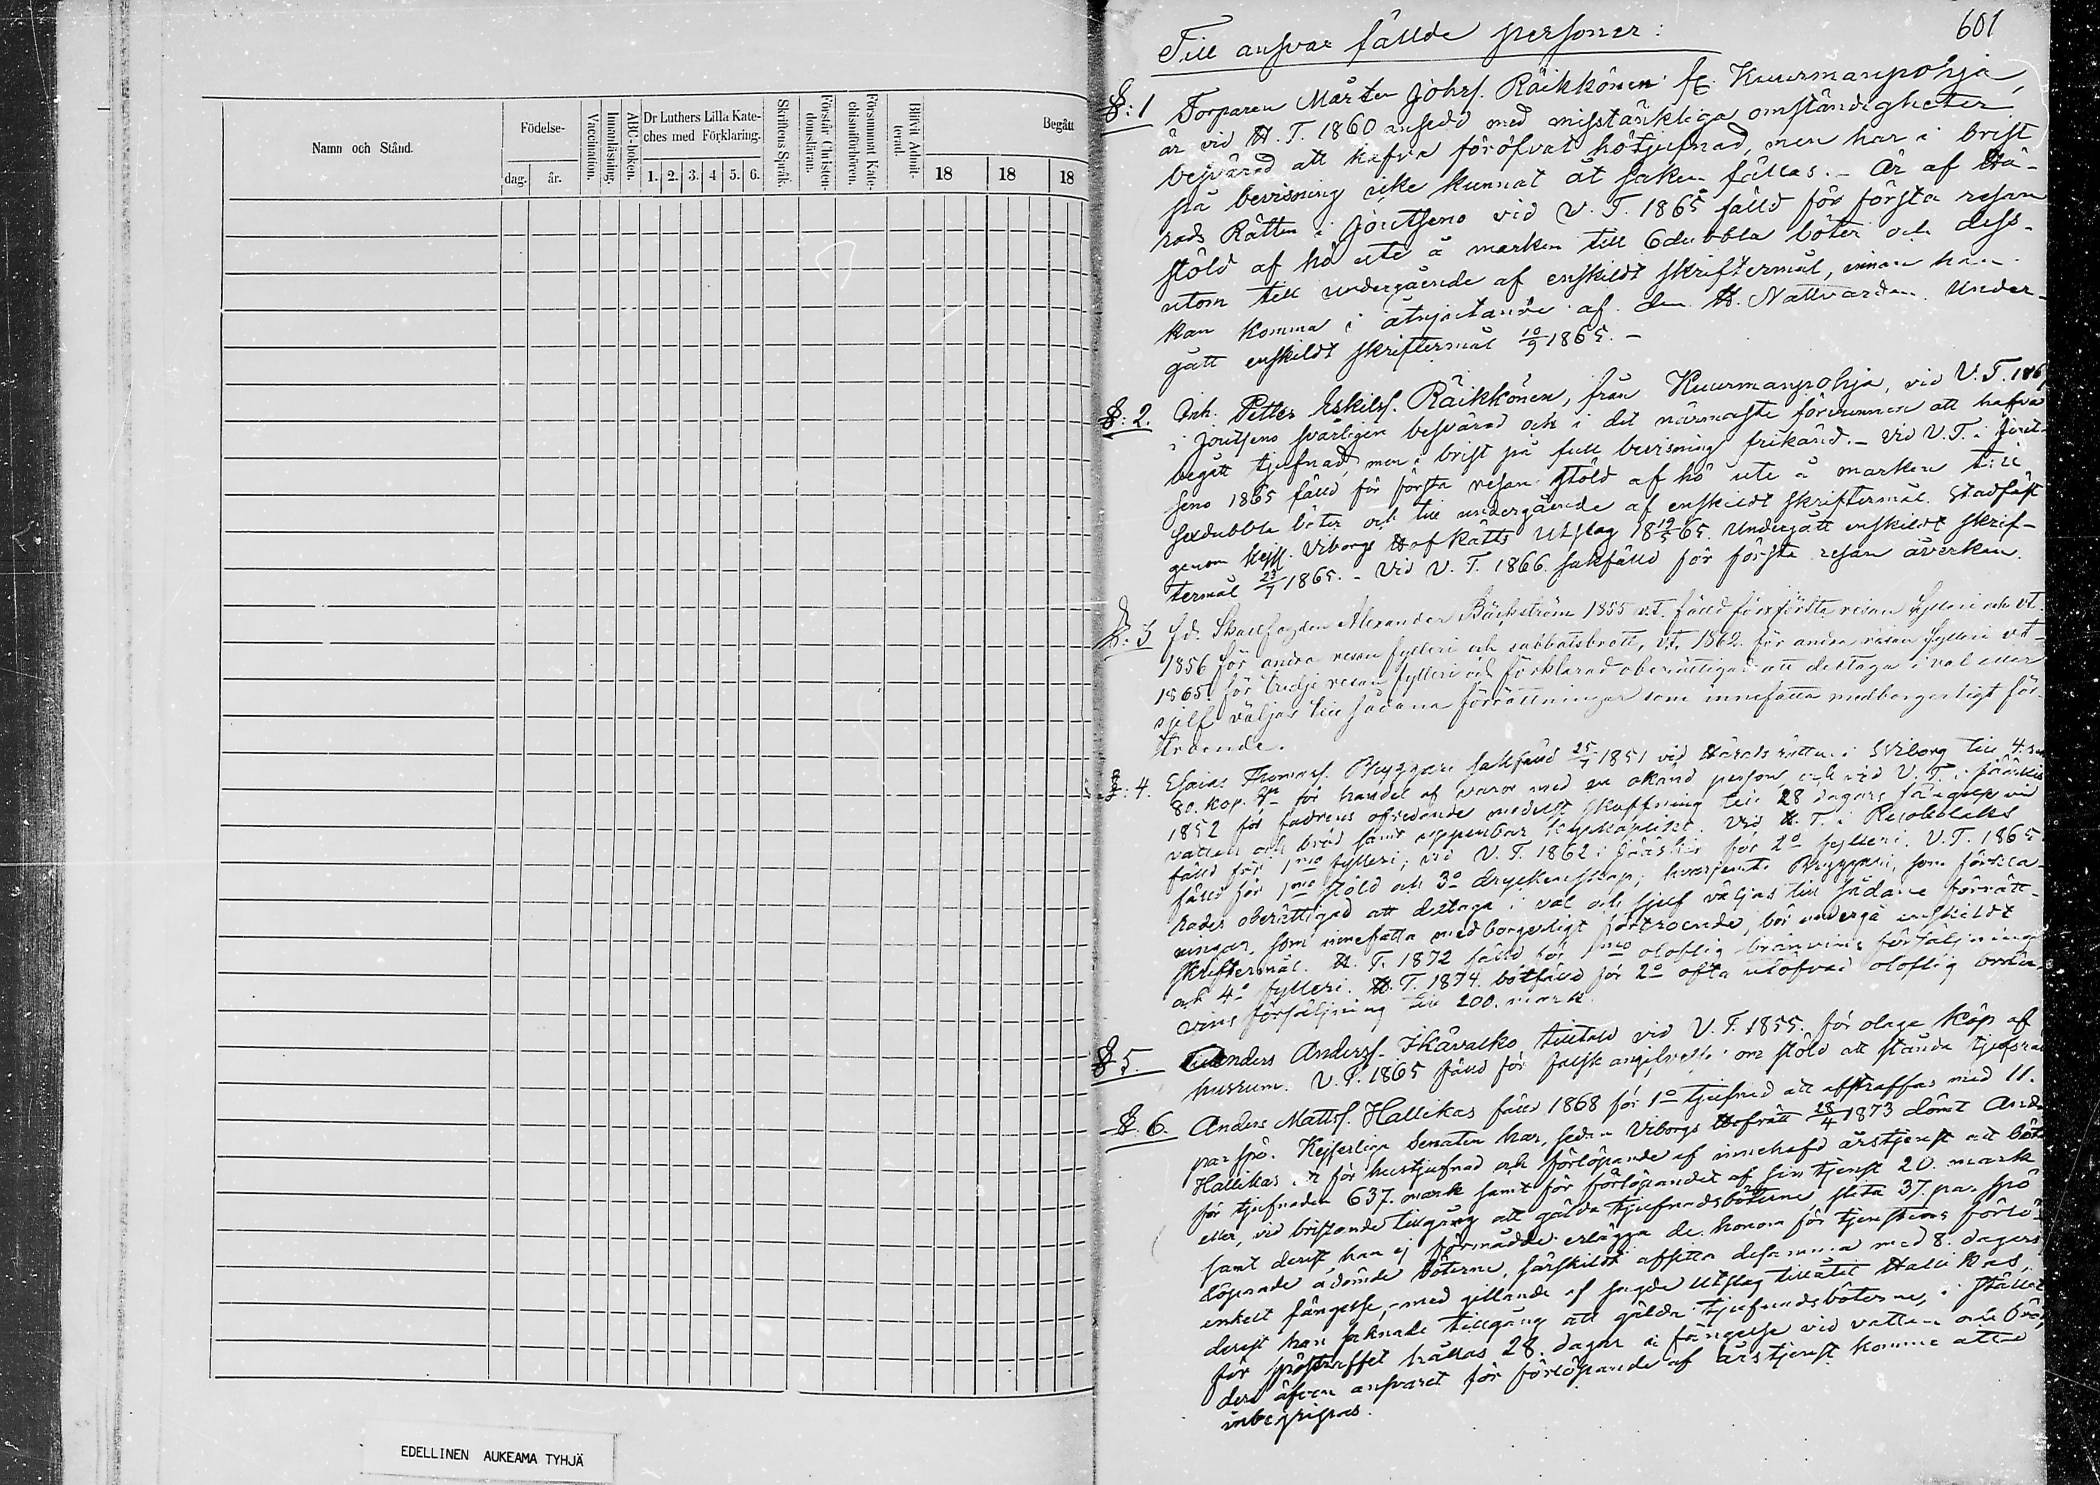 Namn och Stånd.
Födelse-
dag.
år.
Vaccination.
Innanläsning.
ABC-boken.
Dr Luthers Lilla Kate-
ches med Förklaring.
1. 2. 3. 4 5. 6.
Skriftens Språk.
Förstår Christen-
domsläran.
Försummat Kate-
chismiförhören.
Blifvit Admit-
terad.
Begått
18 18 18
EDELLINEN AUKEAMA TYHJÄ
601
Till ansvar fällde personer:
§: 1 Torparen Mårten Johsf. Räikkönen fr. Kuurmanpohja,
är vid H. T. 1860 ansedd med misstänkliga omständigheter
besvärad att hafva föröfvat hötjufnad, men har i brist
på bevisning icke kunnat åt saken fällas. - Är af Hä-
rads Rätten i Joutseno vid V. T. 1865 fälld för första resan
stöld af hö ute å marken till 6dubbla böter och dess-
utom till undergående af enskildt skriftermål, innan han
kan komma i åtnjutande af den H. Nattvarden. Under-
gått enskildt skriftermål 10/9 1865. -
§: 2. Inh. Petter Eskilsf. Räikkönen, från Kuurmanpohja, vid V. T.
i Joutseno svårligen besvärad och i det närmaste förvunnen att hafva
begått tjufnad, men i brist på full bevisning frikänd. - Vid V. T. i Jout-
seno 1865 fälld för första resan stöld af hö ute å marken till
sexdubbla böter och till undergående af enskildt skriftermål. Stadfäst
genom Kejs. Viborgs Hof Rätts Utslag 18 19/5 65. Undergått enskildt skrif-
termål 23/7 1865. - Vid V. T. 1866 sakfälld för första resan åverkan.
§: 3 fd. Skallfogden Alexander Bäckström 1855 v.T. fälld för första resan fylleri och vt.
1856 för andra resan fylleri och sabbatsbrott, vt. 1862 för andra resan fylleri vt
1865 för tredje resan fylleri och förklarad oberättigad att deltaga i val eller
sjelf väljas till sådana förrättningar som innefatta medborgerligt för-
troende.
§: 4. Esaias Thomasf. Phyppari sakfälld 25/7 1851 vid Häradsrätten i Viborg till 4.
80. kop. för handel af varor med en okänd person, och vid V. T. i Jääskis
1852 för fadrens ofredande medelst skuffning till 28 dagars fängelse vid
vatten och bröd samt uppenbar Kyrkoplikt. Vid H. T. i
fälld för 1mo fylleri; vid V. T. 1862 i Jääskis för 2o fylleri. V. T. 1865
fälld för 1mo stöld och 3o dryckenskap; hvarjemte, som förkla-
rades oberättigad att deltaga i val och sjelf väljas till sådane förrätt-
ningar, som innefatta medborgerligt förtroende, bör undergå enskildt
skriftermål. H. T. 1872 fälld för 1mo oloflig bränvins försäljning
och 4o fylleri. H. T. 1874. bötfälld för 2o ofta utöfvad oloflig bränn-
vins försäljning till 200. mark.
§ 5. Anders Andersf. Ikävalko tilltald vid V. T. 1855. för olaga köp af
husrum. V. T. 1865 fälld för falsk angifvelse om stöld att stånda tjufsrätt
§. 6. Anders Mattsf. Hallikas fälld 1868 för 1o tjufnad att afstraffas med 11.
par spö. Kejserliga Senaten har, sedan Viborgs Hofrätt 28/4 1873 dömt And.
Hallikas att för hustjufnad och förlöpande af innehafd årstjenst att böta
för tjufnaden 637. mark samt för förlöpandet af sin tjenst 20. mark
eller, vid bristande tillgång att gälda tjufnadsböterne slita 37. par spö
samt derest han ej förmådde erlägga de honom för tjenstens förlö-
löpande ådömde böterne, särskildt aftjena desamma med 8. dagars
enkelt fängelse, med gillande af sagde utslag tillåtit Hallikas,
derest han saknade tillgång att gälda tjufnadsböterne, i stället
för spöstraffet hållas 28. dagar i fängelse vid vatten och bröd,
deri äfven ansvaret för förlöpande af årstjenst komme att
inbegripas.